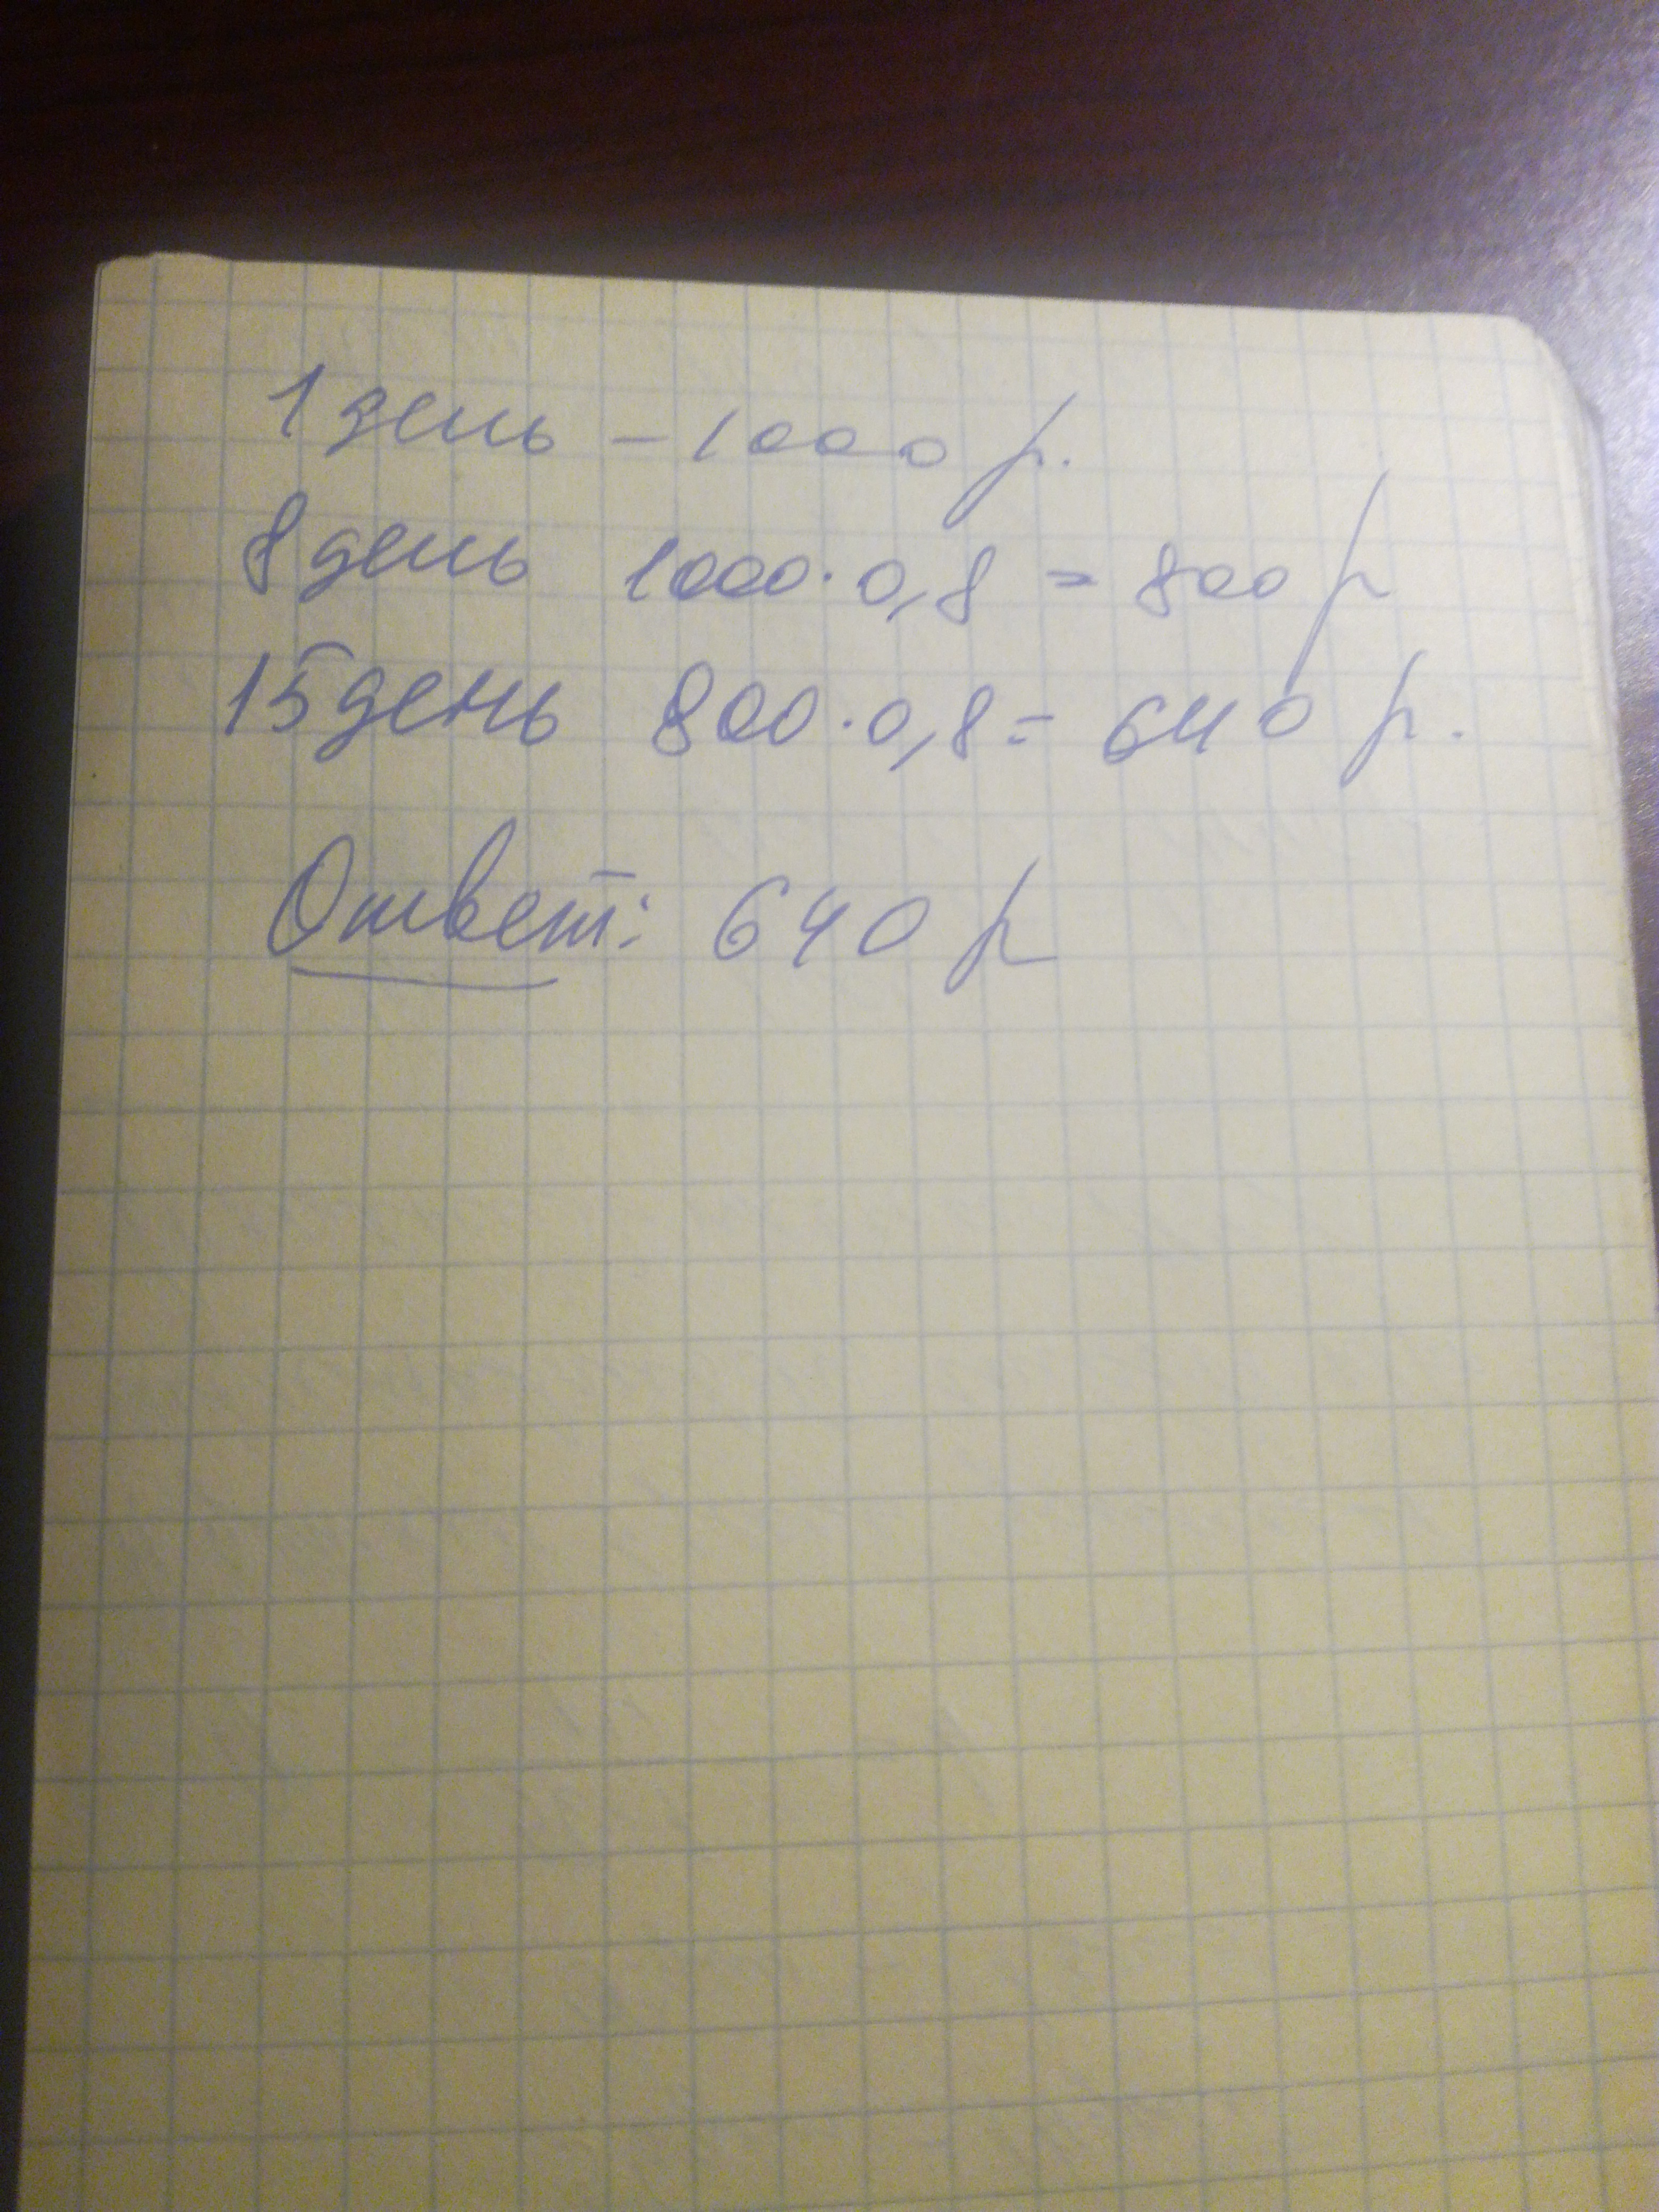 1 день – 1000 р.
8 день 1000·0,8 = 800 р
15 день 800·0,8 = 640 р.
Ответ: 640 р